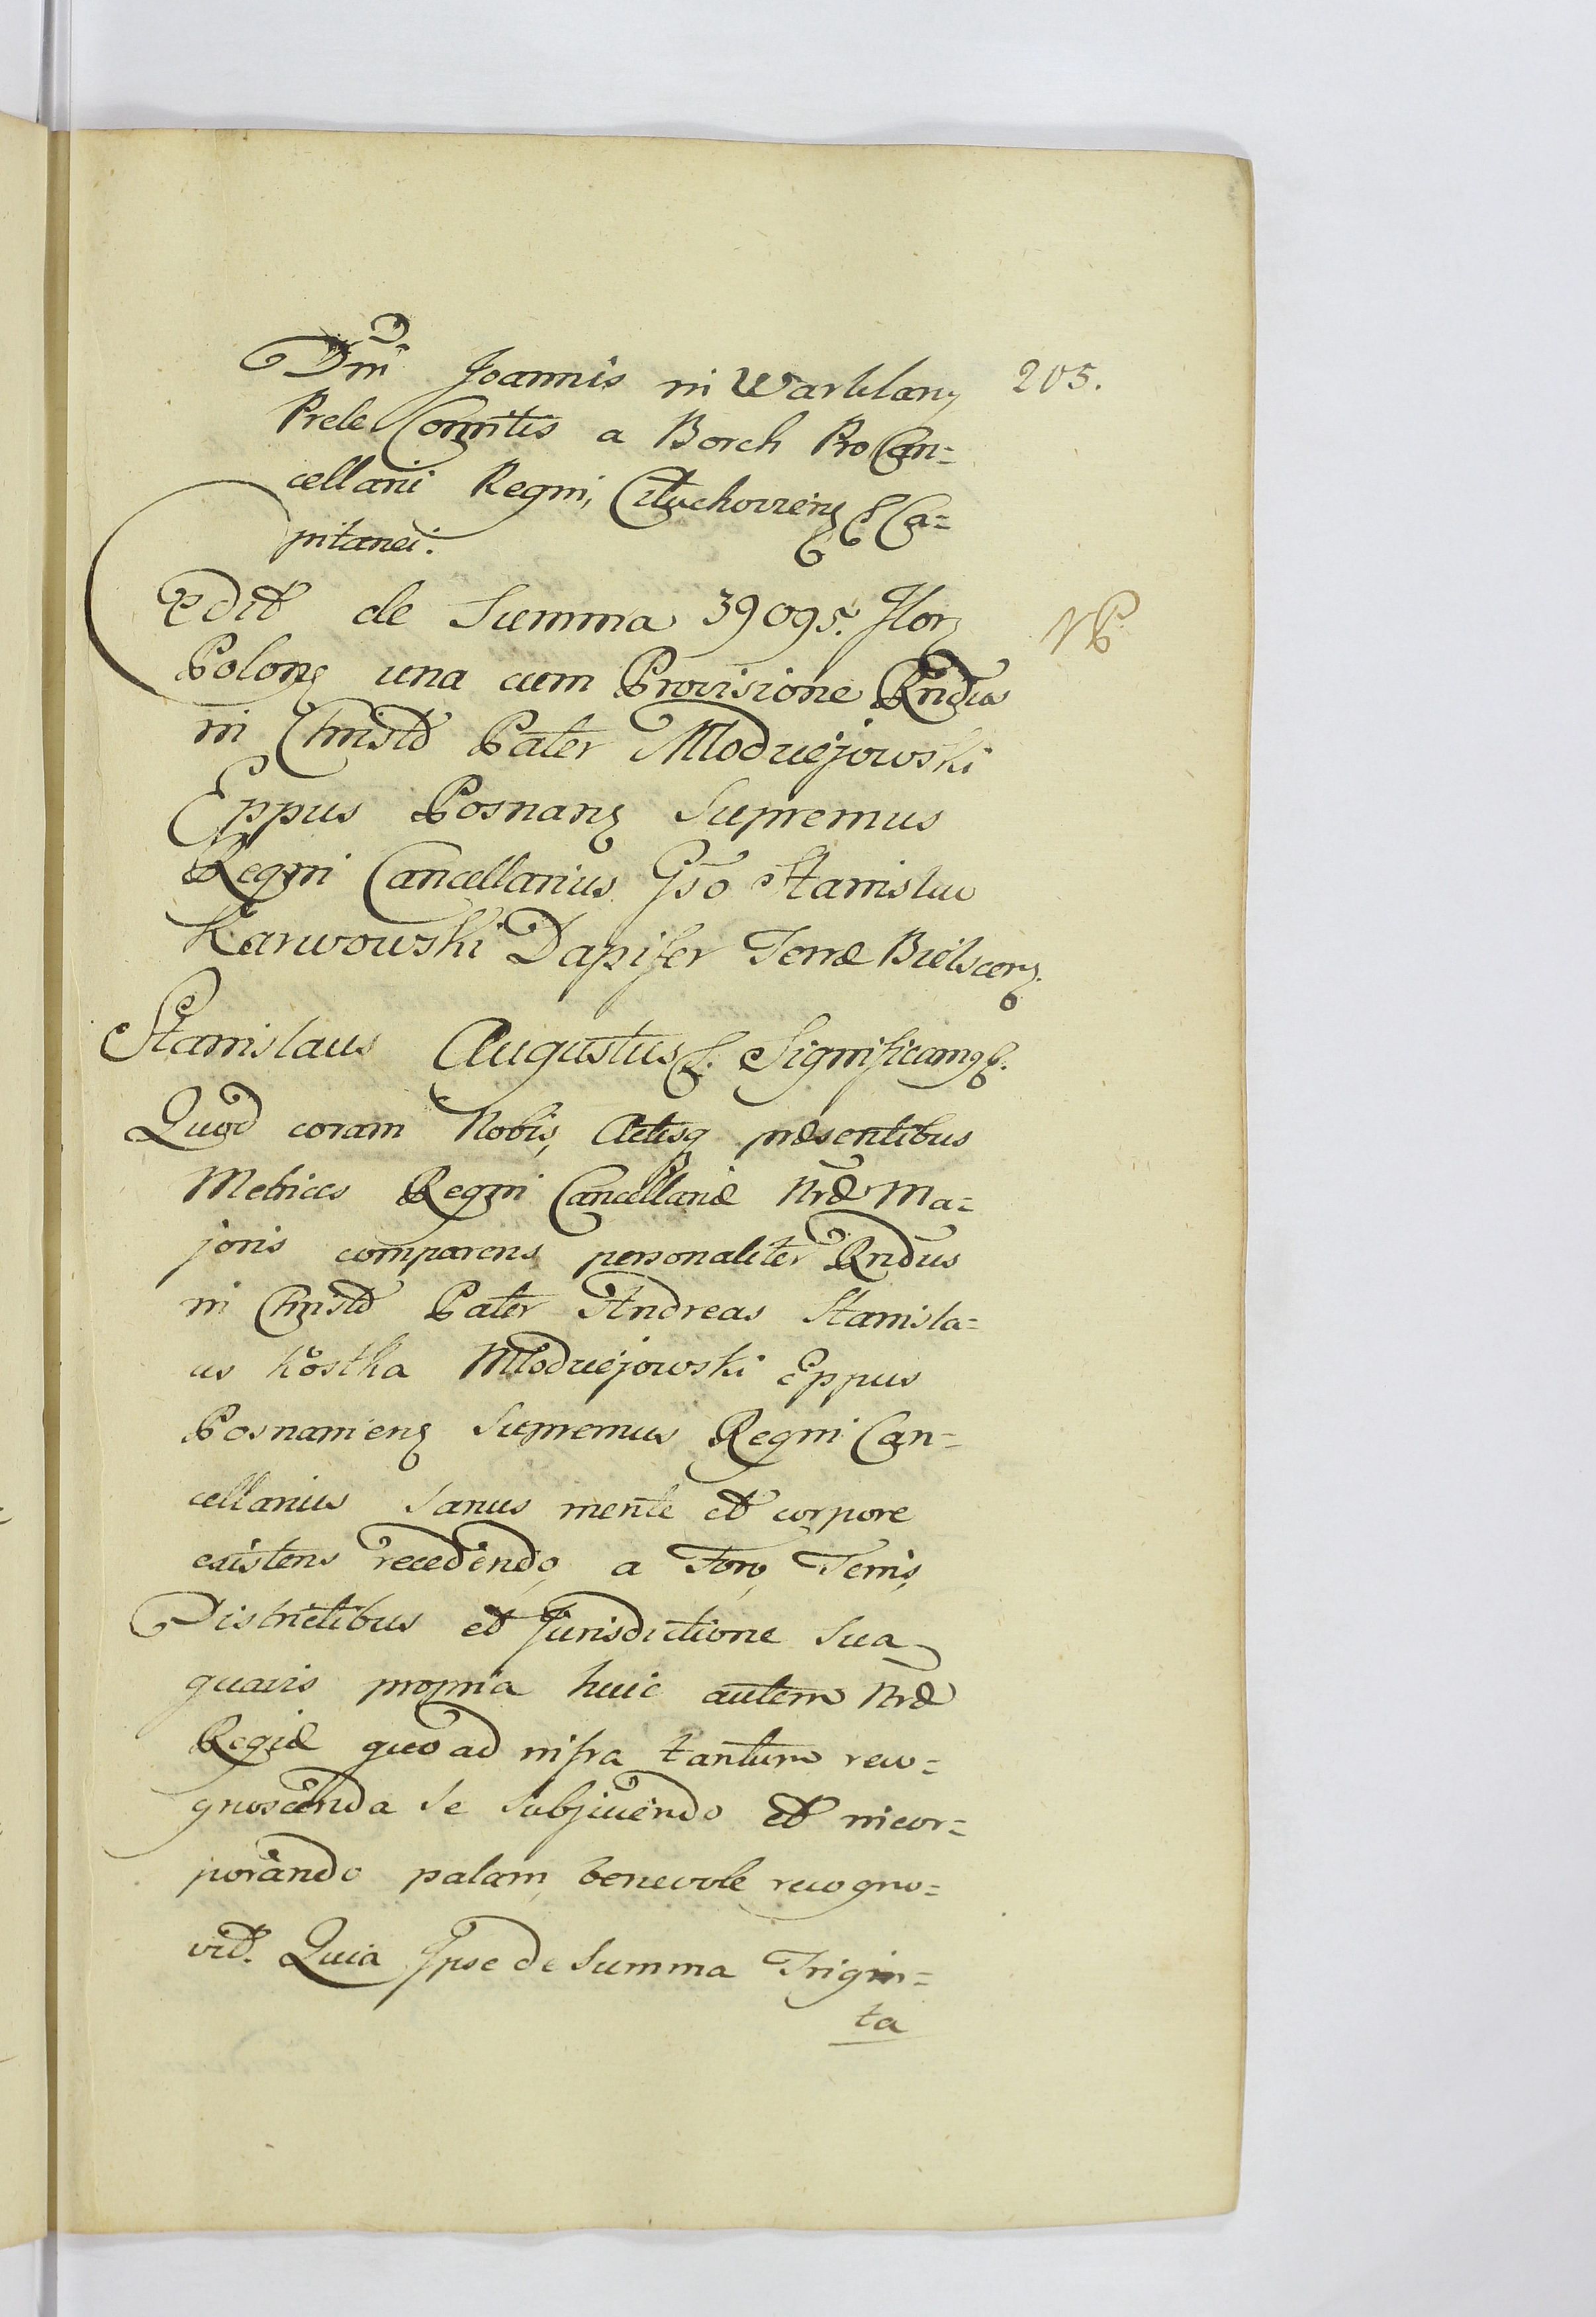 Dni Joannis in Warklany 205.
Prele Comitis a Borch Pro Can=
cellarii Regni, Cztuchovien &c Ca=
pitanei.
Cedit de Summa 39095. Flor
Polon una cum Provisione Rndus NB
in Christo Pater Młodziejowski
Eppus Posnan Supremus
Regni Cancellarius Gso Stanislao
Karwowski Dapifer Terræ Bielscen.
Stanislaus Augustus &. Significamus &.
Quod coram Nobis, Actisq præsentibus
Metrices Regni Cancellariæ Nræ Ma=
joris comparens personaliter Rndus
in Christo Pater Andreas Stanisla=
us Kostka Młodziejowski Eppus
Posnanien Supremus Regni Can=
cellarius sanus mente et corpore
existens recedendo, a Foro, Terris,
Districtibus et Jurisdictione sua
quavis propria huic autem Nræ
Regiæ quo ad infra tantum reco=
gnoscenda se subjiciendo et incor=
porando palam, benevole recogno=
vit. Quia Ipse de Summa Trigin=
ta